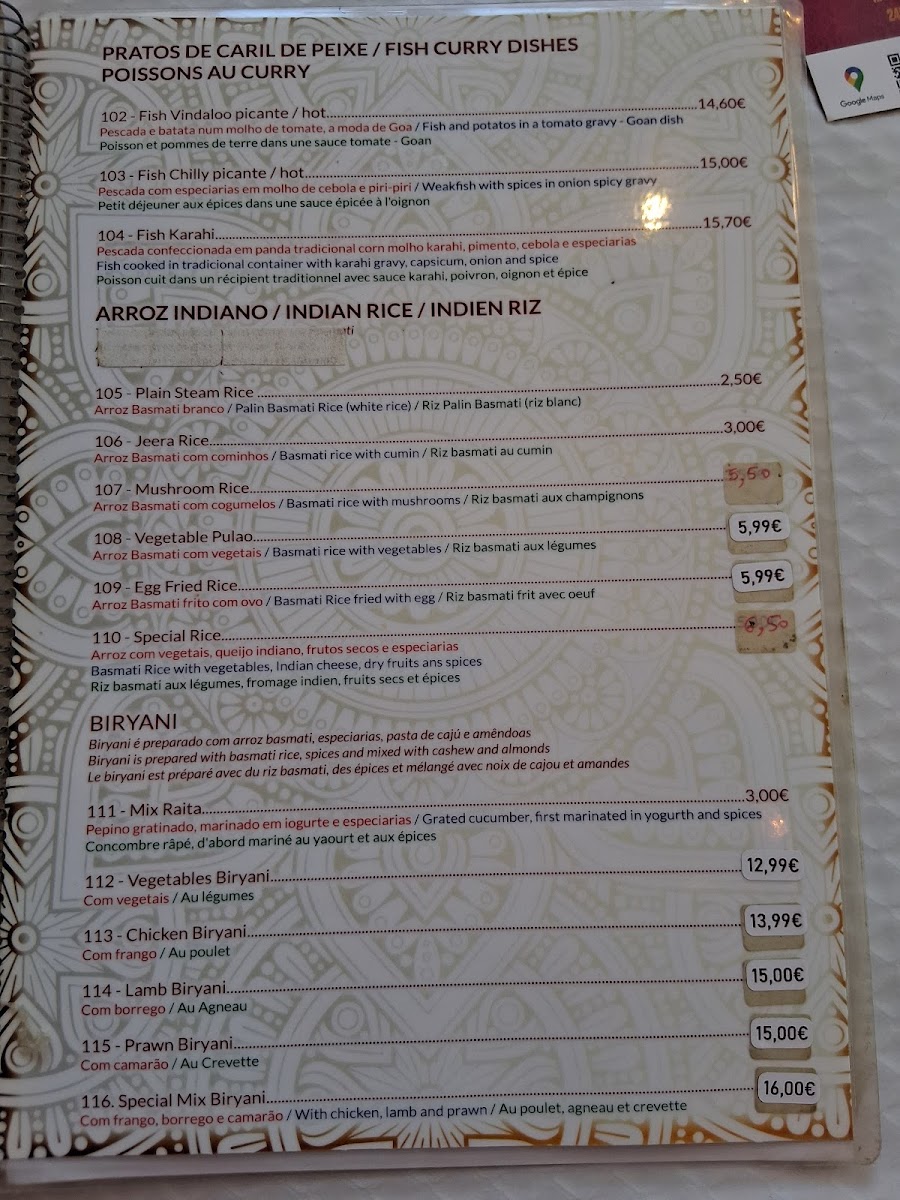 PRATOS DE CARIL DE PEIXE / FISH CURRY DISHES
POISSONS AU CURRY
Google Maps
102 - Fish Vindaloo picante / hot....14,60€
Pescada e batata num molho de tomate, a moda de Goa / Fish and potatos in a tomato gravy - Goan dish
Poisson et pommes de terre dans une sauce tomate - Goan
103 - Fish Chilly picante / hot....15,00€
Pescada com especiarias em molho de cebola e piri-piri / Weakfish with spices in onion spicy gravy
Petit déjeuner aux épices dans une sauce épicée à l'oignon
104 - Fish Karahi....15,70€
Pescada confeccionada em panda tradicional corn molho karahi, pimento, cebola e especiarias
Fish cooked in tradicional container with karahi gravy, capsicum, onion and spice
Poisson cuit dans un récipient traditionnel avec sauce karahi, poivron, oignon et épice
ARROZ INDIANO / INDIAN RICE / INDIEN RIZ
105 - Plain Steam Rice ....2,50€
Arroz Basmati branco / Palin Basmati Rice (white rice) / Riz Palin Basmati (riz blanc)
106 - Jeera Rice....3,00€
Arroz Basmati com cominhos / Basmati rice with cumin / Riz basmati au cumin
107 - Mushroom Rice....5,50
Arroz Basmati com cogumelos / Basmati rice with mushrooms / Riz basmati aux champignons
108 - Vegetable Pulao....5,99€
Arroz Basmati com vegetais / Basmati rice with vegetables / Riz basmati aux légumes
109 - Egg Fried Rice....5,99€
Arroz Basmati frito com ovo / Basmati Rice fried with egg / Riz basmati frit avec oeuf
110 - Special Rice....6,50
Arroz com vegetais, queijo indiano, frutos secos e especiarias
Basmati Rice with vegetables, Indian cheese, dry fruits ans spices
Riz basmati aux légumes, fromage indien, fruits secs et épices
BIRYANI
Biryani é preparado com arroz basmati, especiarias, pasta de cajú e amêndoas
Biryani is prepared with basmati rice, spices and mixed with cashew and almonds
Le biryani est préparé avec du riz basmati, des épices et mélangé avec noix de cajou et amandes
111 - Mix Raita....3,00€
Pepino gratinado, marinado em iogurte e especiarias / Grated cucumber, first marinated in yogurth and spices
Concombre râpé, d'abord mariné au yaourt et aux épices
112 - Vegetables Biryani....12,99€
Com vegetais / Au légumes
113 - Chicken Biryani....13,99€
Com frango / Au poulet
114 - Lamb Biryani....15,00€
Com borrego / Au Agneau
115 - Prawn Biryani....15,00€
Com camarão / Au Crevette
116. Special Mix Biryani....16,00€
Com frango, borrego e camarão / With chicken, lamb and prawn / Au poulet, agneau et crevette